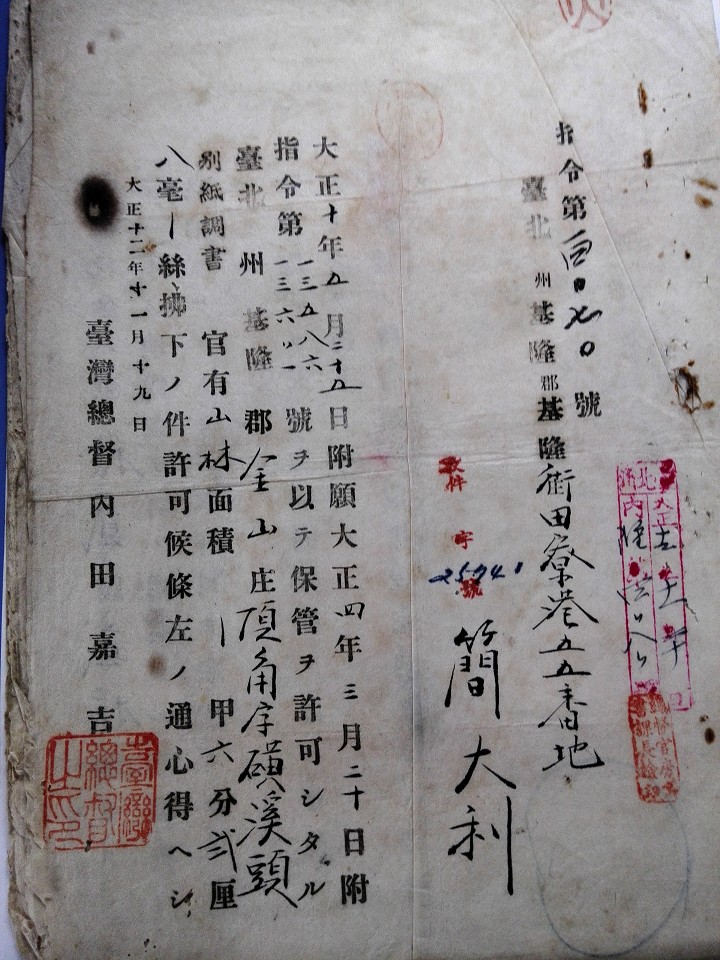 指令第
號
臺北州基隆郡基隆街田寮港五五番地
簡大利
件
字
號
25941
大正十年五月二十五日附願大正四年三月二十日附
指令第一三五八六號ヲ以テ保管ヲ許可シタル
臺北州基隆郡金山庄頂角字磺溪頭
別紙調書官有山林面積一甲六分弐厘
八毫一絲拂下ノ件許可候條左ノ通心得ヘシ
大正十二年十一月十九日
臺灣總督內田嘉吉
臺灣總督之印